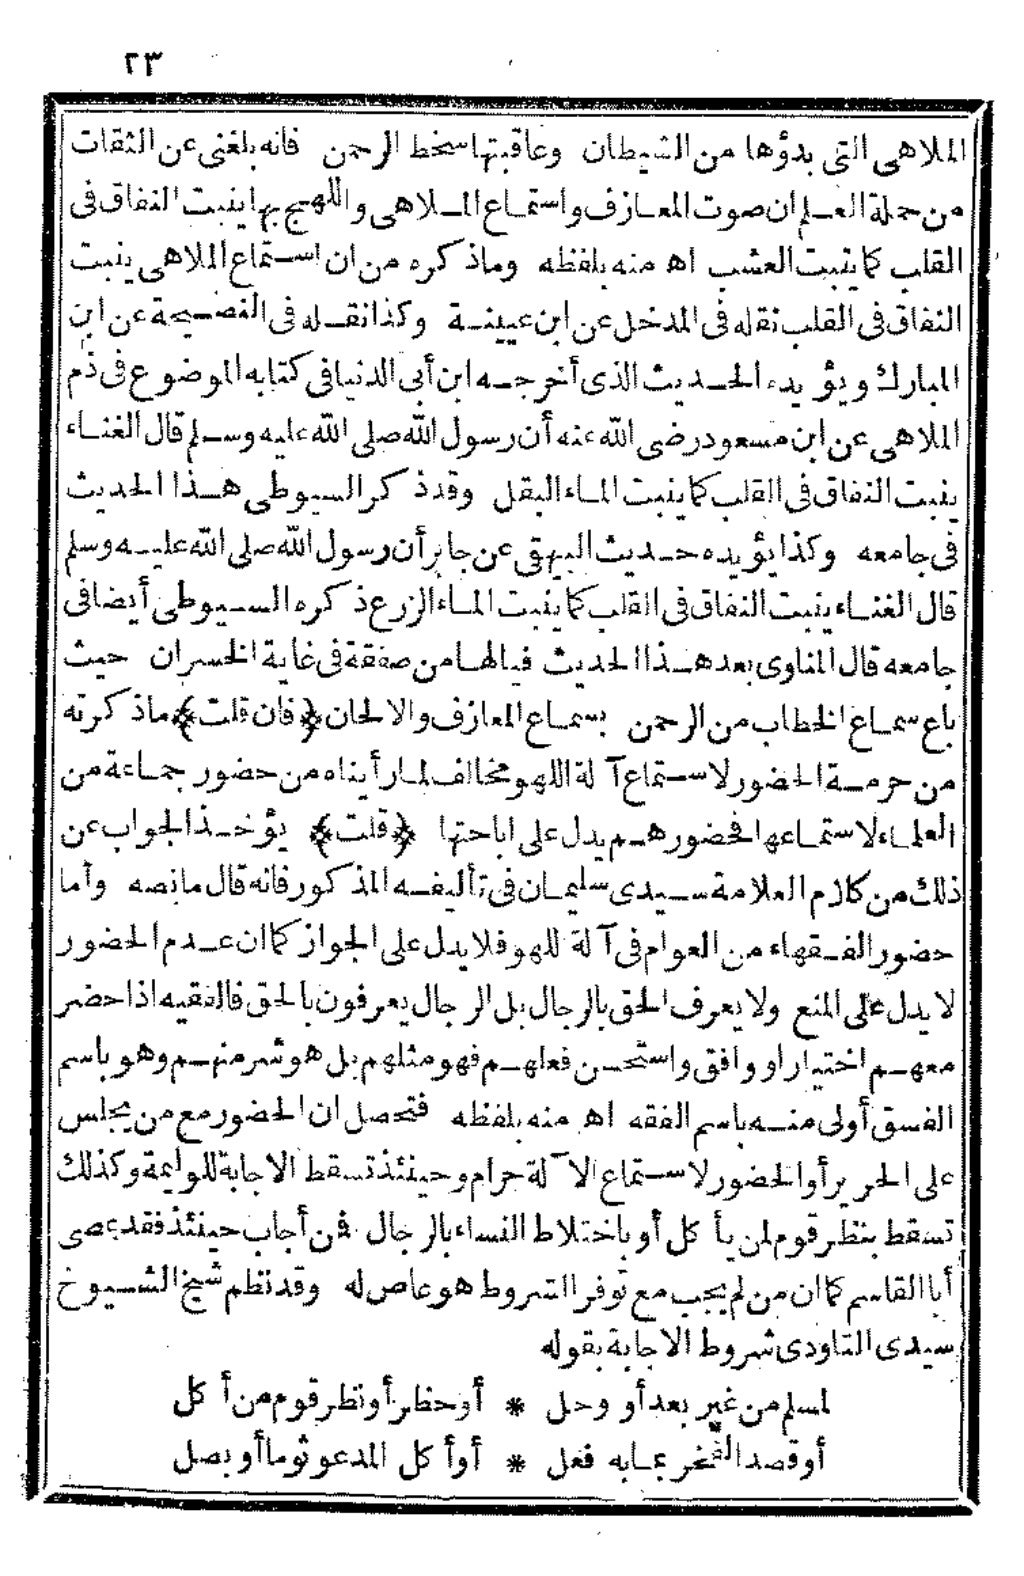 ٢٣
الملاهى التى بدؤها من الشيطان وعاقبتها سخط الرحمن فانه بلغنى عن الثقات
من حملة العلم ان صوت المعازف واستماع الملاهى واللهج بها ينبت النفاق فى
القلب كما ينبت العشب اه منه بلفظه وماذكره من ان استماع الملاهى ينبت
النفاق فى القلب نقله فى المدخل عن ابن عيينة وكذا نقله فى النصيحة عن ابن
المبارك ويؤيده الحديث الذى أخرجه ابن أبى الدنيا فى كتابه الموضوع فى ذم
الملاهى عن ابن مسعود رضى الله عنه أن رسول الله صلى الله عليه وسلم قال الغناء
ينبت النفاق فى القلب كما ينبت الماء البقل وقد ذكر السيوطى هذا الحديث
فى جامعه وكذا يؤيده حديث البيهقى عن جابر أن رسول الله صلى الله عليه وسلم
قال الغناء ينبت النفاق فى القلب كما ينبت الماء الزرع ذكره السيوطى أيضا فى
جامعه قال المناوى بعد هذا الحديث فيالها من صفقة فى غاية الخسران حيث
باع سماع الخطاب من الرحمن بسماع المعازف والالحان ﴿فان قلت﴾ ماذكرته
من حرمة الحضور لاستماع آلة اللهو مخالف لما رأيناه من حضور جماعة من
العلماء لاستماعها فحضورهم يدل على اباحتها ﴿قلت﴾ يؤخذ الجواب عن
ذلك من كلام العلامة سيدى سليمان فى تأليفه المذكور فانه قال مانصه وأما
حضور الفقهاء من العوام فى آلة للهو فلا يدل على الجواز كما ان عدم الحضور
لا يدل على المنع ولا يعرف الحق بالرجال بل الرجال يعرفون بالحق فالفقيه اذا حضر
معهم اختيارا ووافق واستحسن فعلهم فهو مثلهم بل هو شر منهم وهو باسم
الفسق أولى منه باسم الفقه اه منه بلفظه فتحصل ان الحضور مع من يجلس
على الحرير أو الحضور لاستماع الآلة حرام وحينئذ تسقط الاجابة للوليمة وكذلك
تسقط بنظر قوم لمن يأكل أو باختلاط النساء بالرجال فمن أجاب حينئذ فقد عصى
أبا القاسم كما ان من لم يجب مع توفر الشروط هو عاص له وقد نظم شيخ الشيوخ
سيدى التاودى شروط الاجابة بقوله
لمسلم من غير بعد أو وحل * أو حظر أو نظر قوم من أكل
أو قصد الفخر بما به فعل * أو أكل المدعو ثوما أو بصل